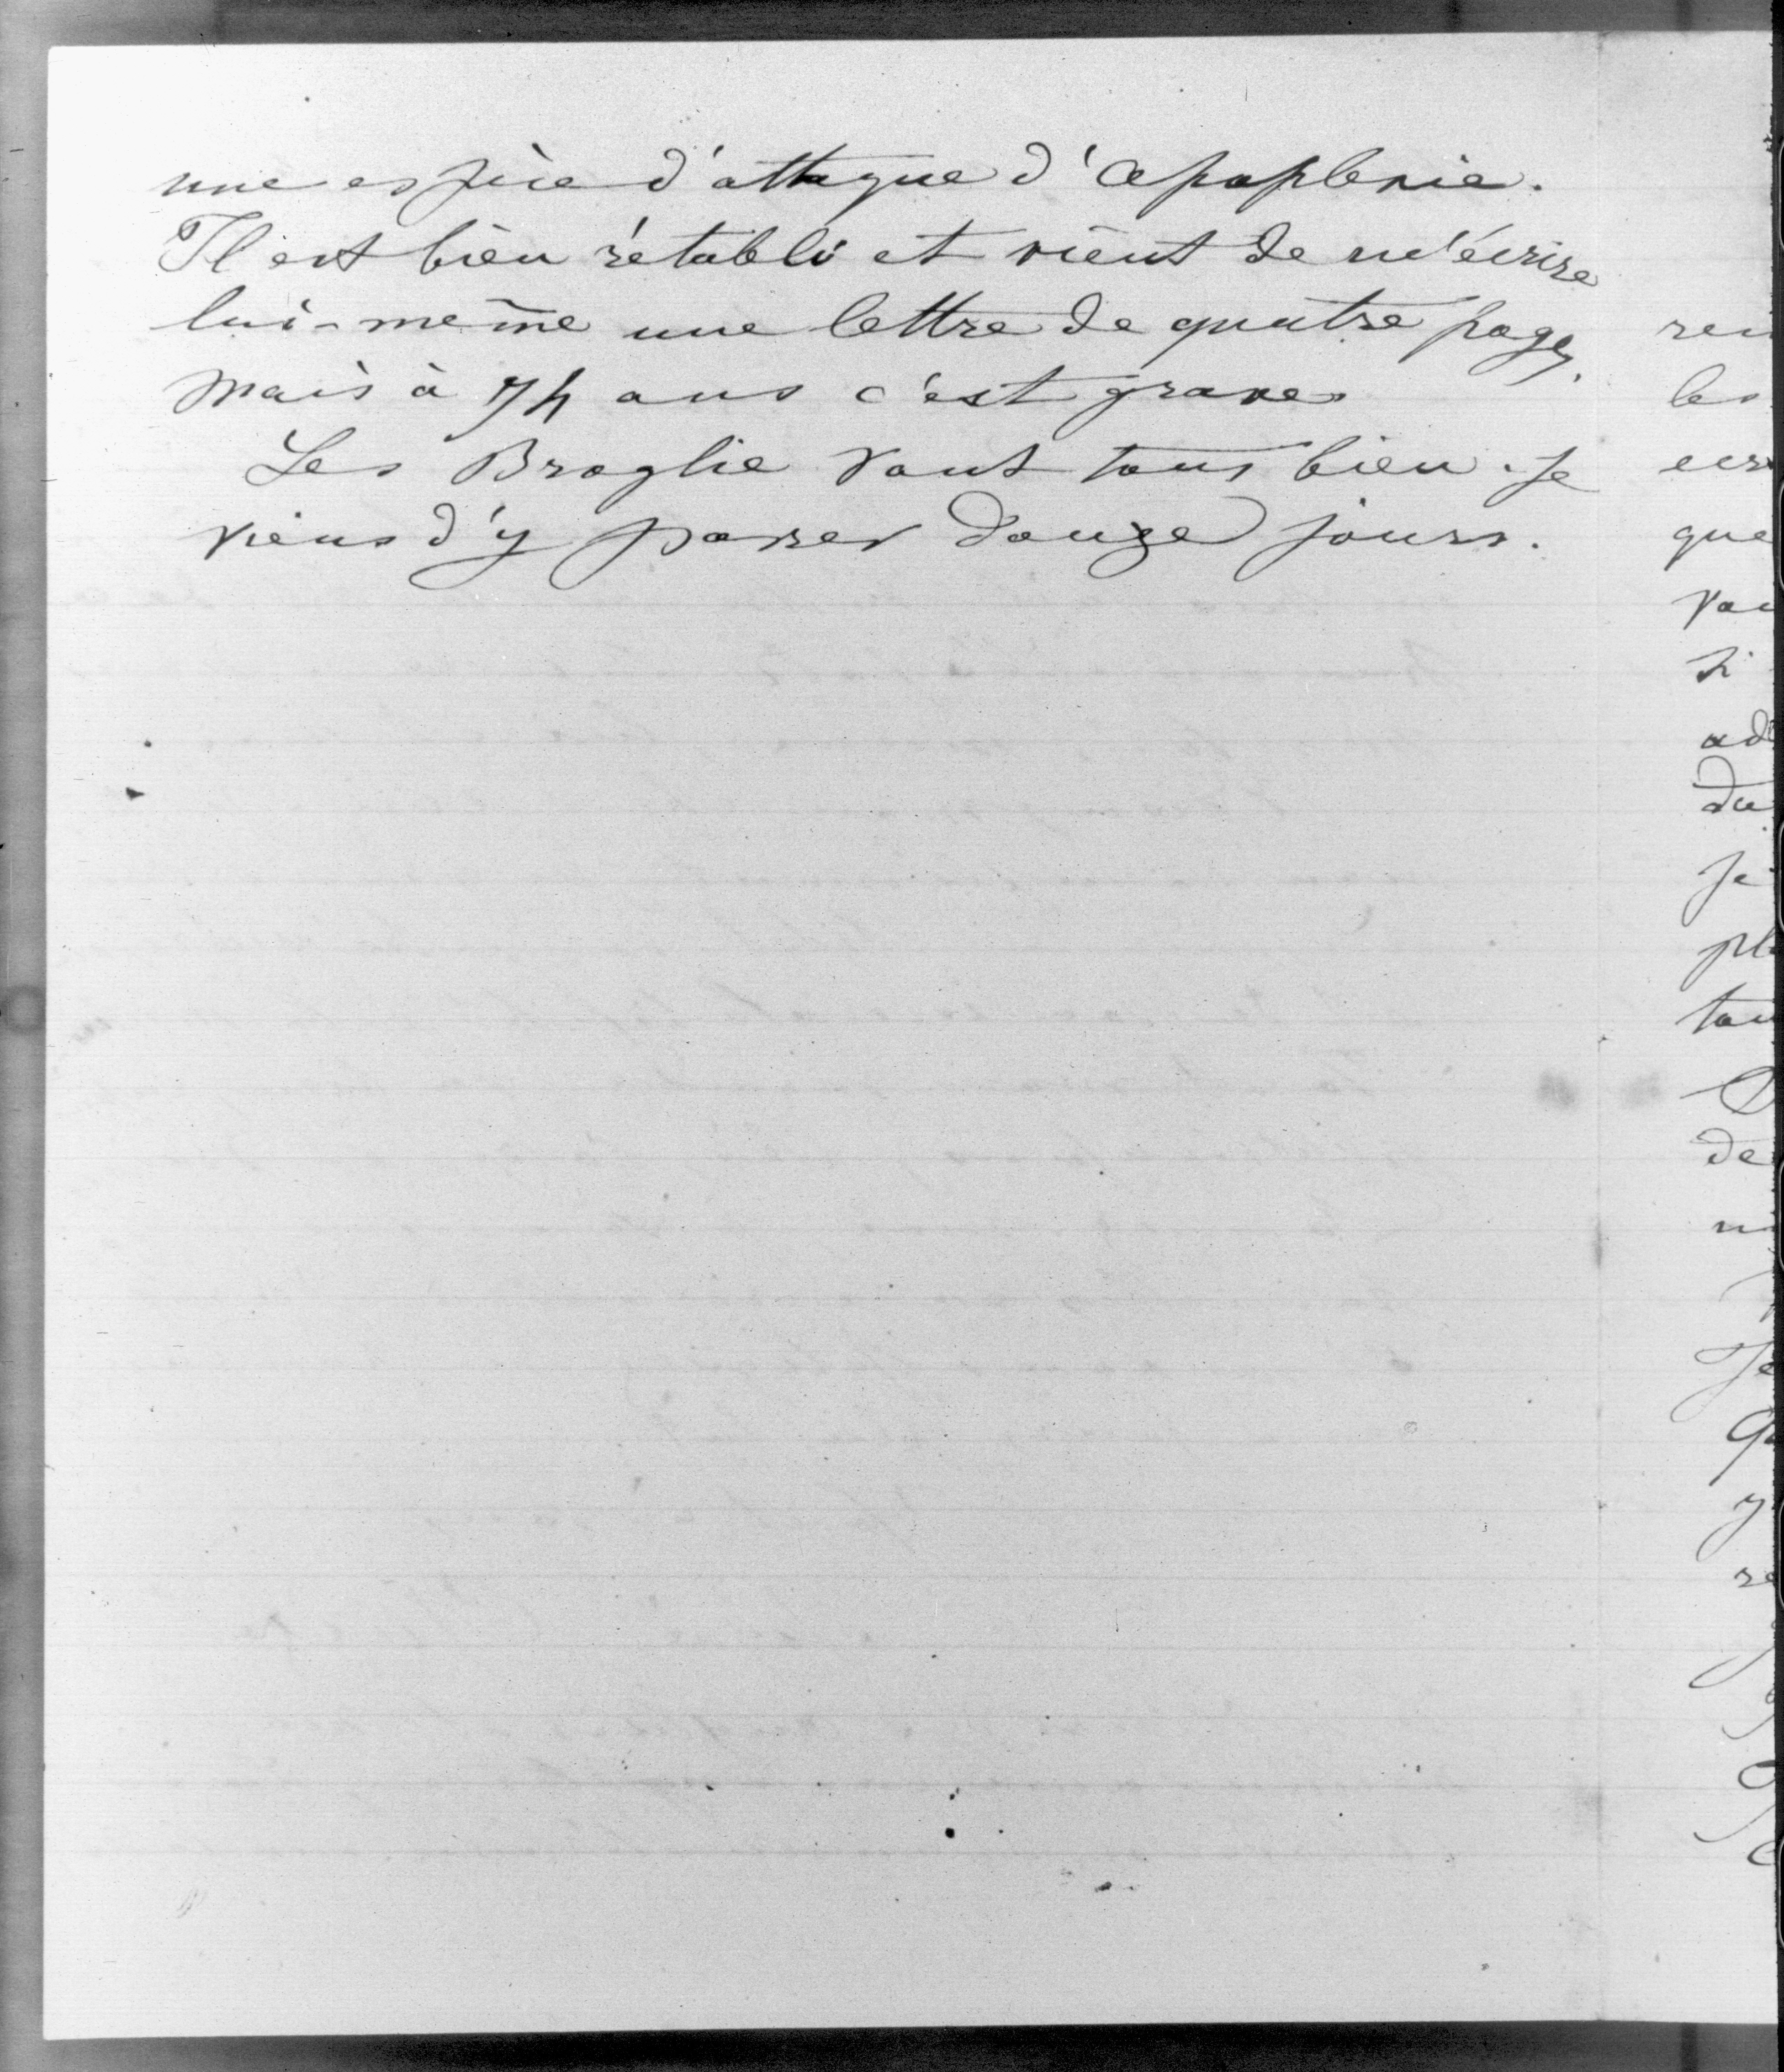 une espèce d'attaque d'apoplexie.
Il est bien rétabli et vient de m'écrire
lui-même une lettre de quatre pages,
mais à 74 ans c'est grave.
Les Broglie vont tous bien. Je
viens d'y passer douze jours.
les
que
si
de
Je
y